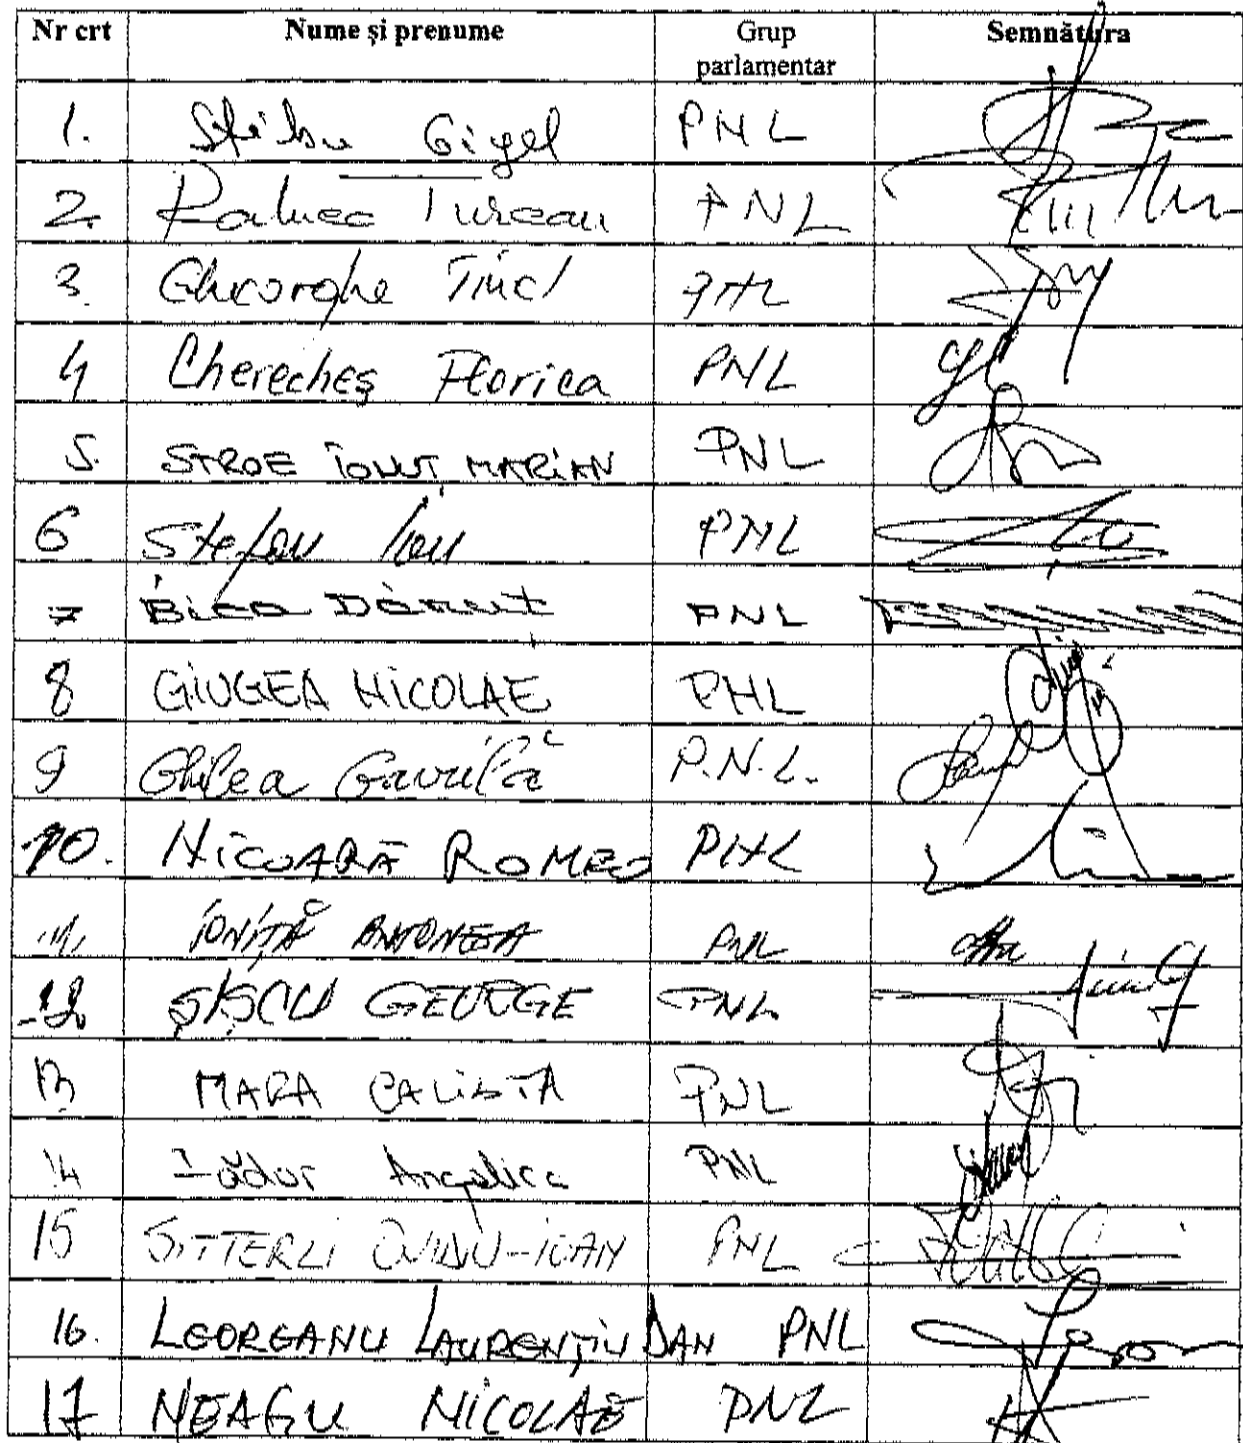 Nr crt Nume și prenume Grup parlamentar Semnătura
1. Știrbu Gigel PNL
2. Raluca Turcan PNL
3. Gheorghe Tinel PNL
4 Cherecheș Florica PNL
5. STROE IONUȚ MARIAN PNL
6 Ștefan Ion PNL
7 Bica Dănuț PNL
8 GIUGEA NICOLAE PNL
9 Ghilea Gavrilă P.N.L.
10. NICOARĂ ROMEO PNL
11. IONIȚĂ ANTONETA PNL
12. ȘIȘCU GEORGE PNL
13 MARA CALISTA PNL
14 Fădor Angelica PNL
15 SITTERLI OVIDIU-IOAN PNL
16. LEOREANU LAURENȚIU DAN PNL
17 NEAGU NICOLAE PNL